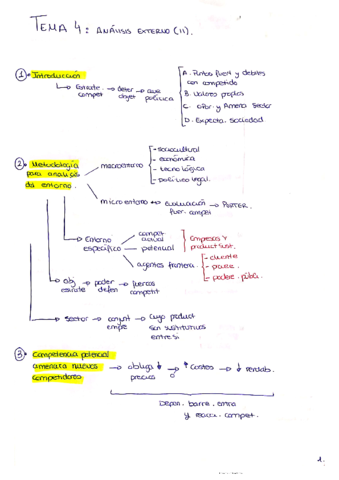 TEMA 4: ANÁLISIS EXTERNO (II).
① Introducción
↳ Estrate. → deter → que
compet objet política
A. Puntos fuert y debiles
con competido
B. Valores propios
C. Opor. y Amena Sector
D. Expecta. Sociedad
② Metodología
para analisis
ds entorno.
macroentorno
- sociocultural
- económica
- tecnológica
- político legal.
microentorno → evaluación → PORTER.
fuer. compet
↳ Entorno
especifico
compet.
actual
potencial
Empresas y
product sust.
agentes frontera
- cliente
- provee.
- poder públi.
↳ obj → poder → fuerzas
estrate defen competit
→ Sector → conjunt → cuyo product
empre son sustitutivos
entre si
③ Competencia potencial
amenaza nuevos
competidores
→ obliga ↓ → ↑ costes → ↓ rentab.
precios o
Depen. barre. entra
y reacci. compet.
1.